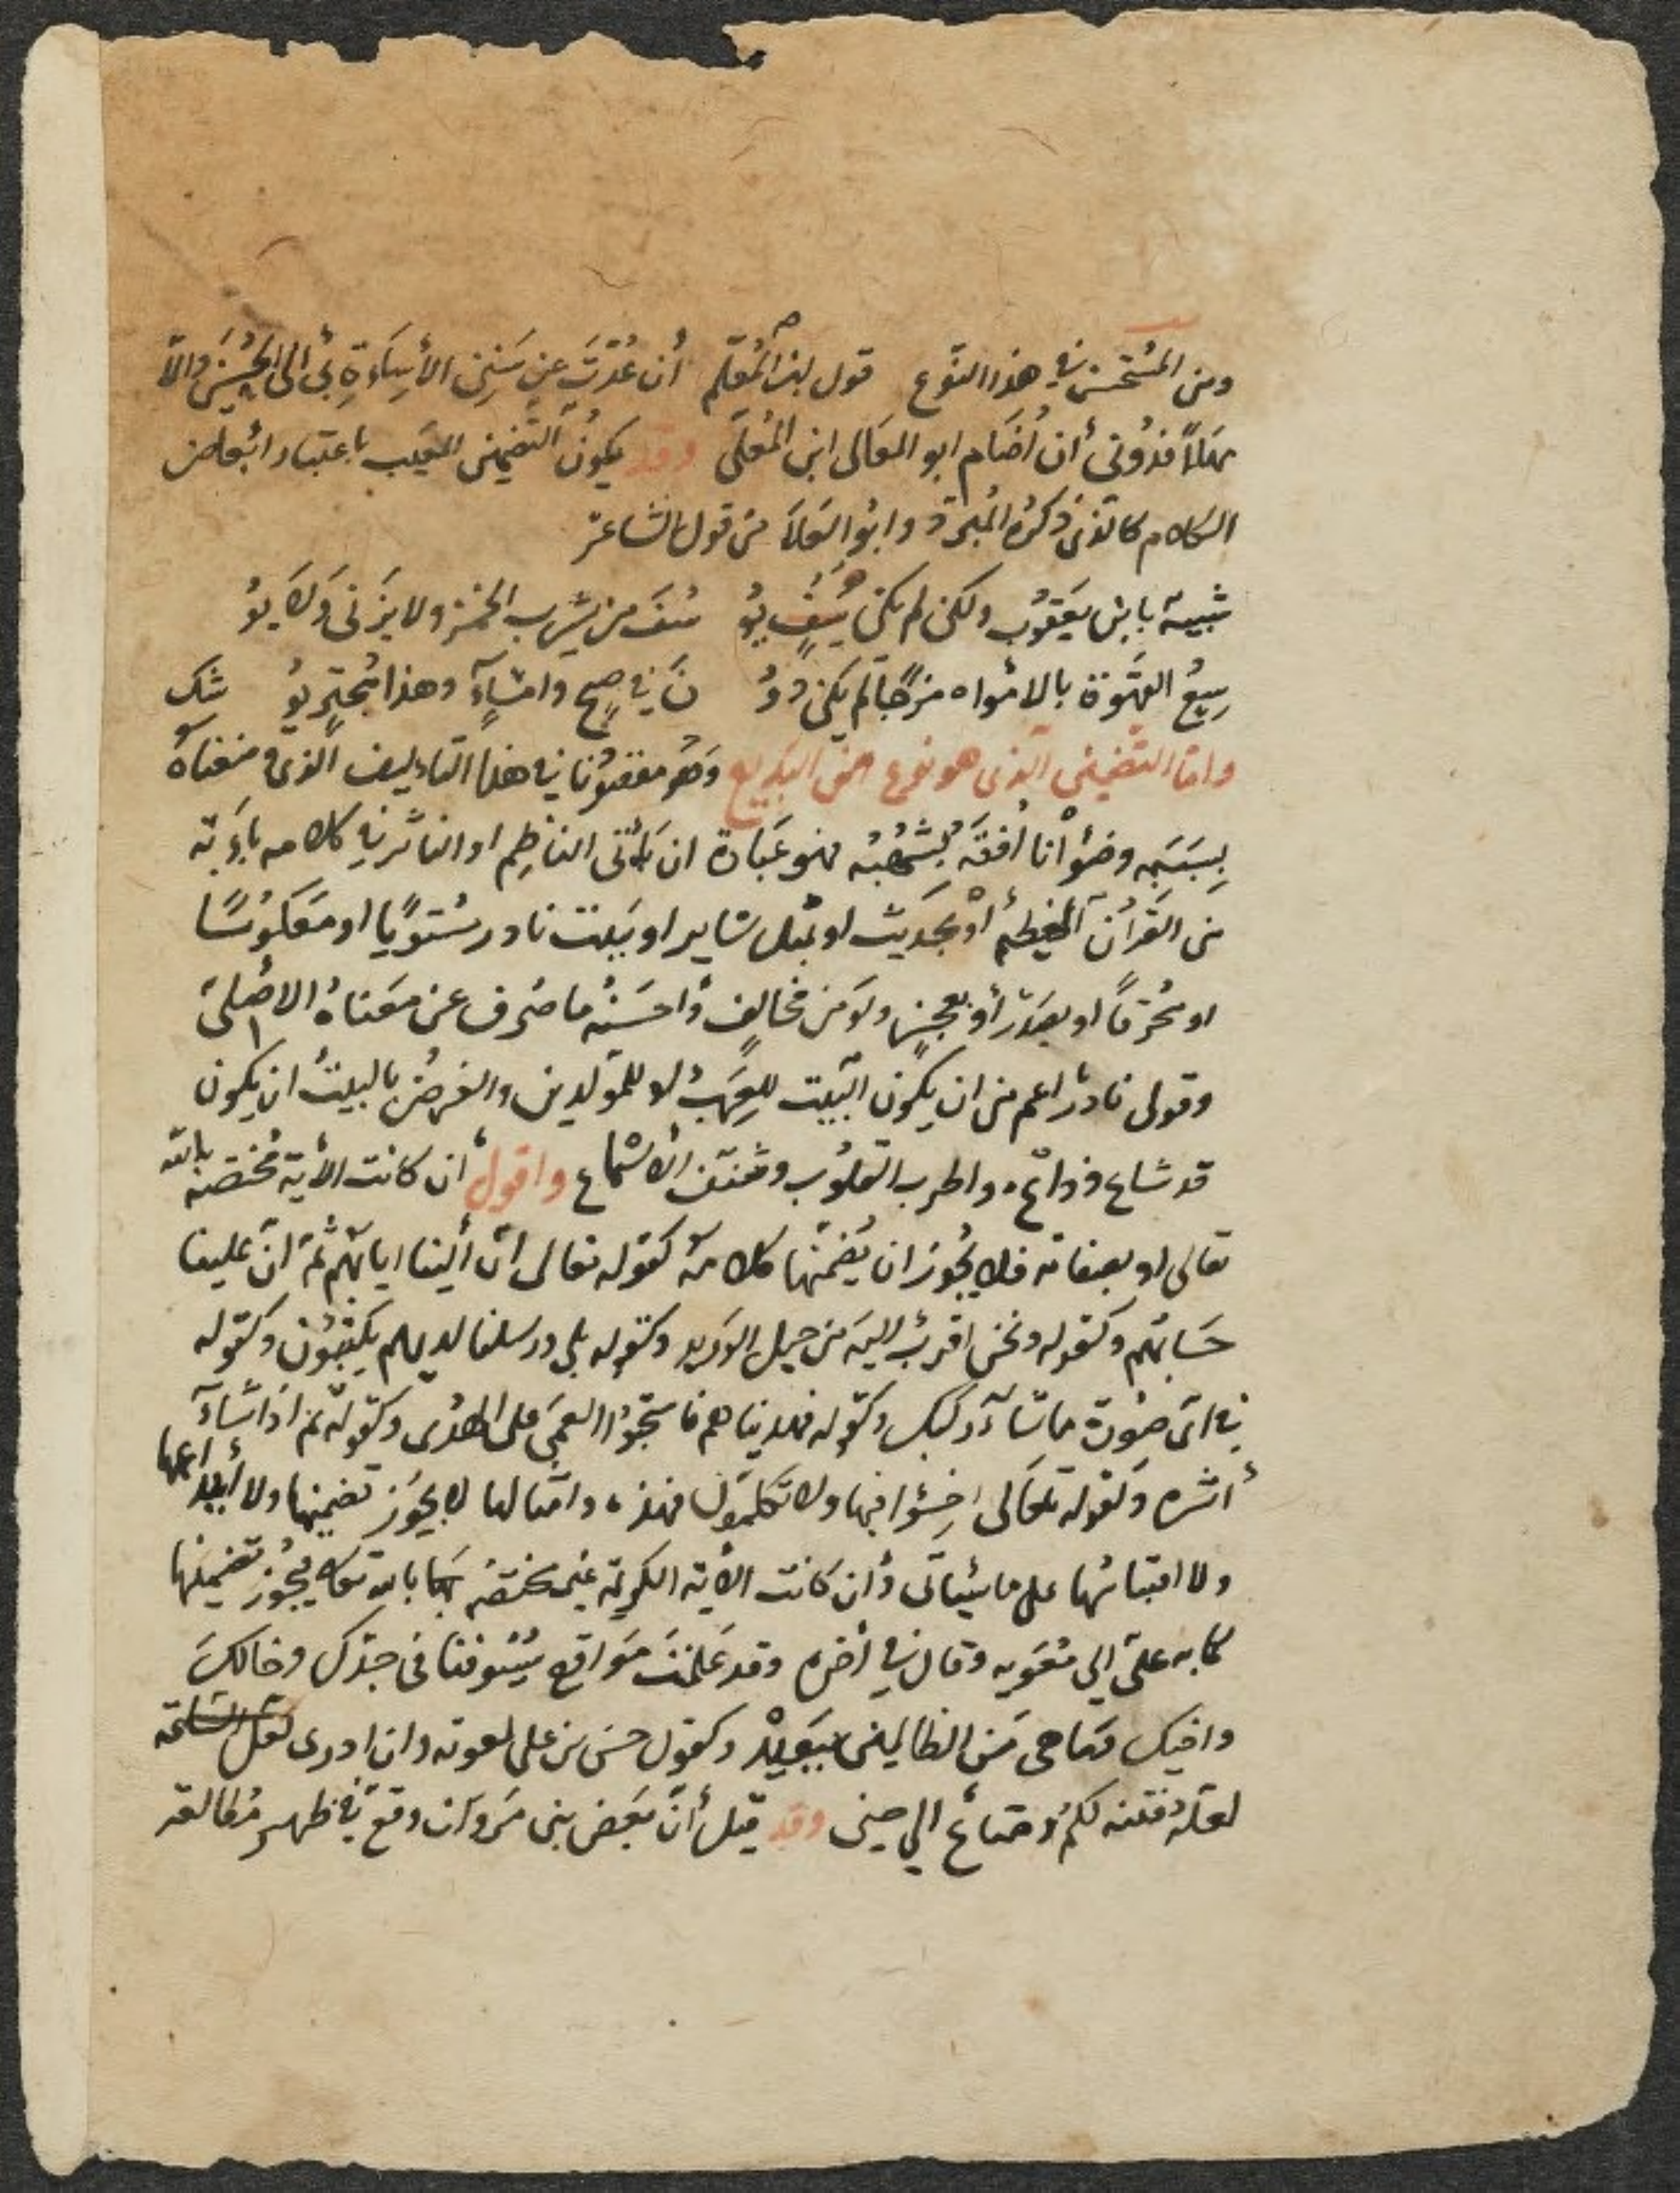 ومن المستحسن في هذا النوع قول ابن المعلم أن عُدْتَ عن سَنَنِ الأِساءَةِ بي الى الحُسْنى والا
مَهَلاً فدُونى أن اُضَام ابو المعالى ابن المُعلّى وقد يكونُ التّضمِينُ المعَيب باعتبار ابْعاض
الكلام كالذى ذكرهُ المُبرّد وابُوالعَلاَ من قول الشاعر
شبيهٌ بابن يَعقوُب ولكن لم يكن يُسُفٍ يوُ سُفَ من يشرب الخمر ولا يَزنى وَلاَ يوُ
سِيعُ القهْوَة بالامْواه مزجًا لم يكن دوُ نَ في صبحٍ وامْسَاءٍ وهذا مُجترٍ يوُ شك
وامّا التّضمين الذى هو نوع من البَديع وَهُو مقصوُدنا في هذا التاءليف الذى منعناهُ
بِسَبَبِه وضوُانا اُفقَه بشُهُبُه فهو عَبَارة ان ياْتى الناظِم او الناثر في كلامه باءَية
من القرأن العظيم أوْ بحديث او بمثل سَاير او ببيت نادر مستويًا او معكوُسًا
او محُرّفًا او بصَدْر أو بعجزٍ ولو من مخالِفٍ وأحسَنُه ما صُرف عن معناهُ الاصْلىّ
وقولى نادر اعم من ان يكون البَيت للعَرَب او للموّلدين والغرضُ بالبيتْ ان يكون
قد شاع وذاع، واطرب القلُوب وشنّف الأسْماع واقول أن كانت الأية مختصّة بالله
تعالى او بصفاته فلا يجُوز ان يُضمّنَها كلامَهُ كقوله تعالى انّ ألينا ايابَهُم ثمّ انّ علينا
حسَابَهُم وكقوله ونحن اقربُ اليَه من حبل الوَريد وكقوله بلى ورسلنا لديهم يكتبوُن وكقوله
في اىّ صوُرة ما شاءَ ركبك وكقوله فهديناهم فاستحبّوُا العمَى على الهدُى وكقوله ثم اذا شاءَ
أنشره وكقوله تعَالى اخِسئوا فيها ولا تكلمّون فهذه، وامثالها لا يجوُز تضمينها ولا أيداعها
ولا اقتباسُها على ما سيَأتى وأن كانت الأية الكريمة غير مختصّة بالله تعالى فيجُوز تضمينها
كما به علىّ الي معَويه وقال في أخره وقد عَلمْتَ مَواقع سيُوفنا فى جدّك وخالكَ
واخيك وما هى من الظالمين ببَعيدْ وكقول حسَن بن على لمعويه وان ادرى لعَلّ الساعَة
لعَلّهُ فتنة لكمُ ومتاعٌ الي حين وقد قيلَ أنّ بَعضَ بنى مَروَان وقع في ظهر مُطالعَة